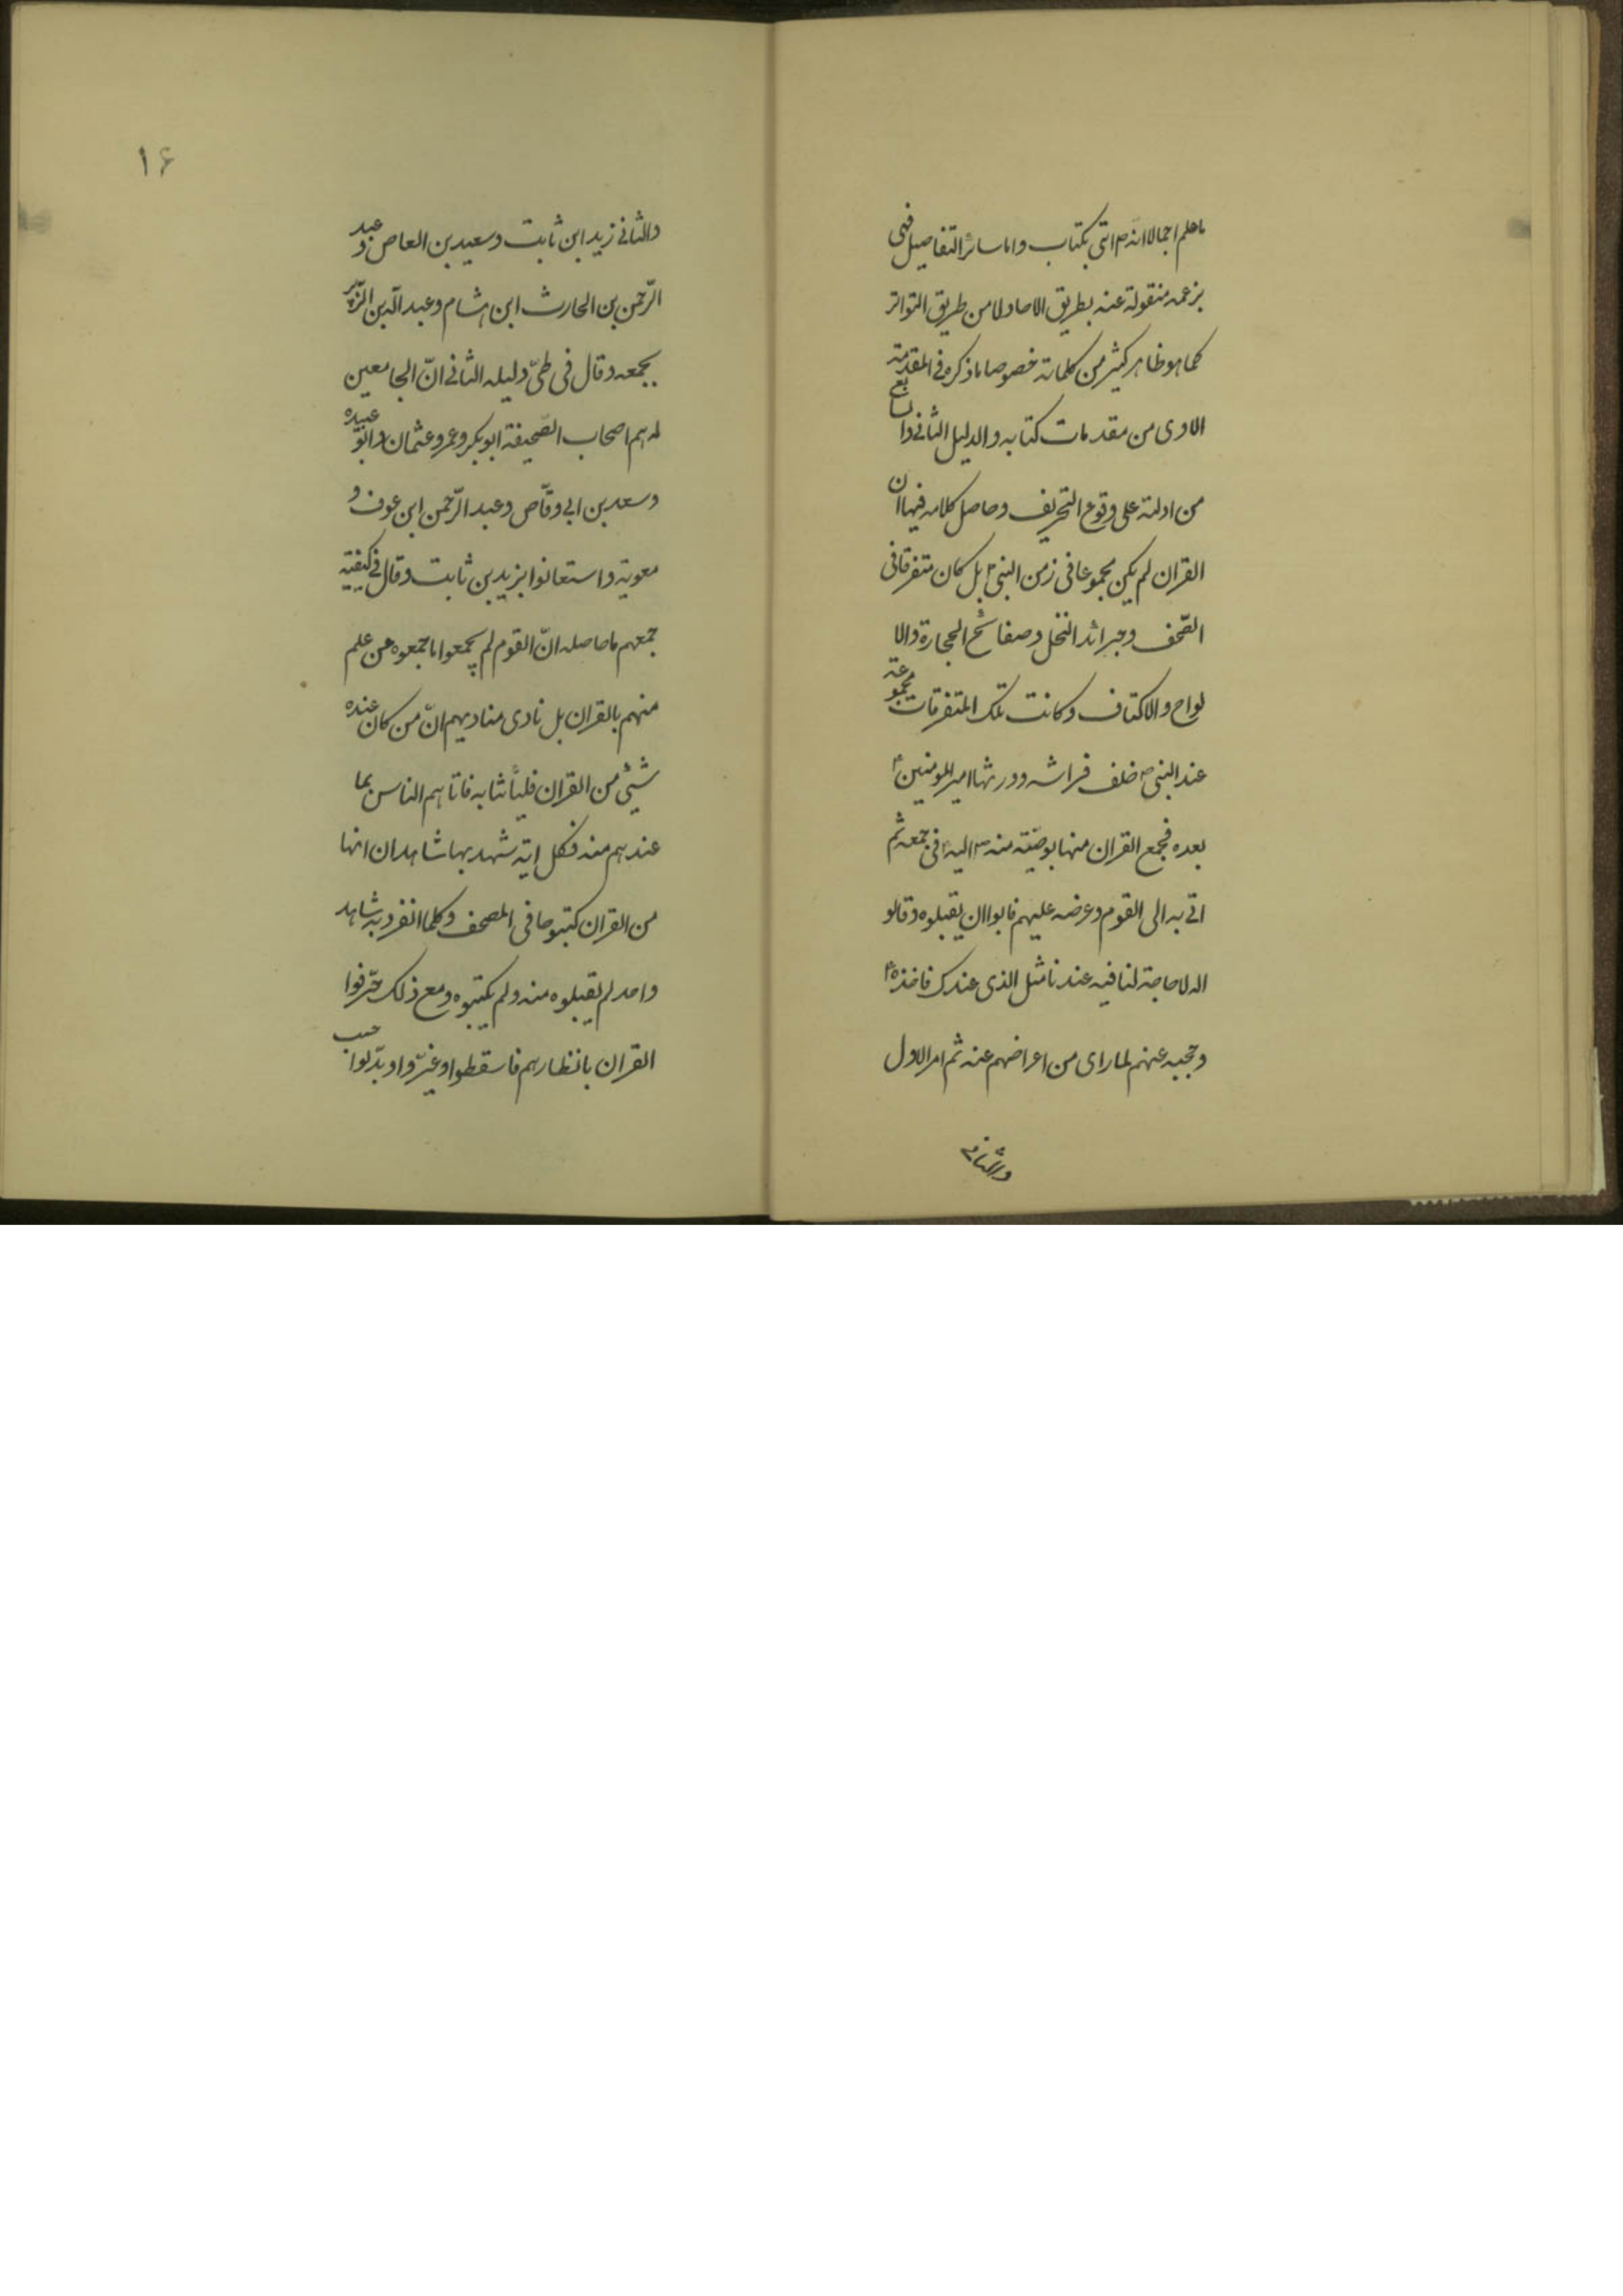 ما علم اجمالا انه ص اتى بكتاب واما سائر التفاصيل فهى
بزعمه منقولة عنه بطريق الاحاد لا من طريق التواتر
كما هو ظاهر كثير من كلماته خصوصا ما ذكره فى المقدمة
الاولى من مقدمات كتابه والدليل الثانى والسابع
من ادلته على وقوع التحريف وحاصل كلامه فيها ان
القران لم يكن مجموعا فى زمن النبى ص بل كان متفرقا فى
الصّحف وجرائد النخل وصفائح الحجارة والا
لواح والاكتاف وكانت تلك المتفرقات مجموعة
عند النبى ص خلف فراشه وورثها امير المومنين ع
بعده فجمع القران منها بوصيّته منه ص اليه ع فى جمعه ثم
اتى به الى القوم وعرضه عليهم فابوا ان يقبلوه وقالو
اله لا حاجة لنا فيه عندنا مثل الذى عندك فاخذه ع
وحجبه عنهم لما راى من اعراضهم عنه ثم امر الاول
والثانى
١۶
والثانى زيد ابن ثابت وسعيد بن العاص وعبد
الرّحمن بن الحارث ابن هشام وعبد الله بن الزّبير
بجمعه وقال فى طىّ دليله الثانى انّ الجامعين
له هم اصحاب الصّحيفة ابو بكر وعمر وعثمان وابو عبيده
وسعد بن ابى وقّاص وعبد الرّحمن ابن عوف و
معوية واستعانوا بزيد بن ثابت وقال فى كيفيّة
جمعهم ما حاصله انّ القوم لم يجمعوا ما جمعوه عن علم
منهم بالقران بل نادى مناديهم انّ من كان عنده
شيئ من القران فليأتنا به فاتاهم الناس بما
عندهم منه فكل اية شهد بها شاهدان انها
من القران كتبوها فى المصحف وكلما انفرد به شاهد
واحد لم يقبلوه منه ولم يكتبوه ومع ذلك حرّفوا
القران بانظارهم فاسقطوا وغيّروا وبدّلوا حسب